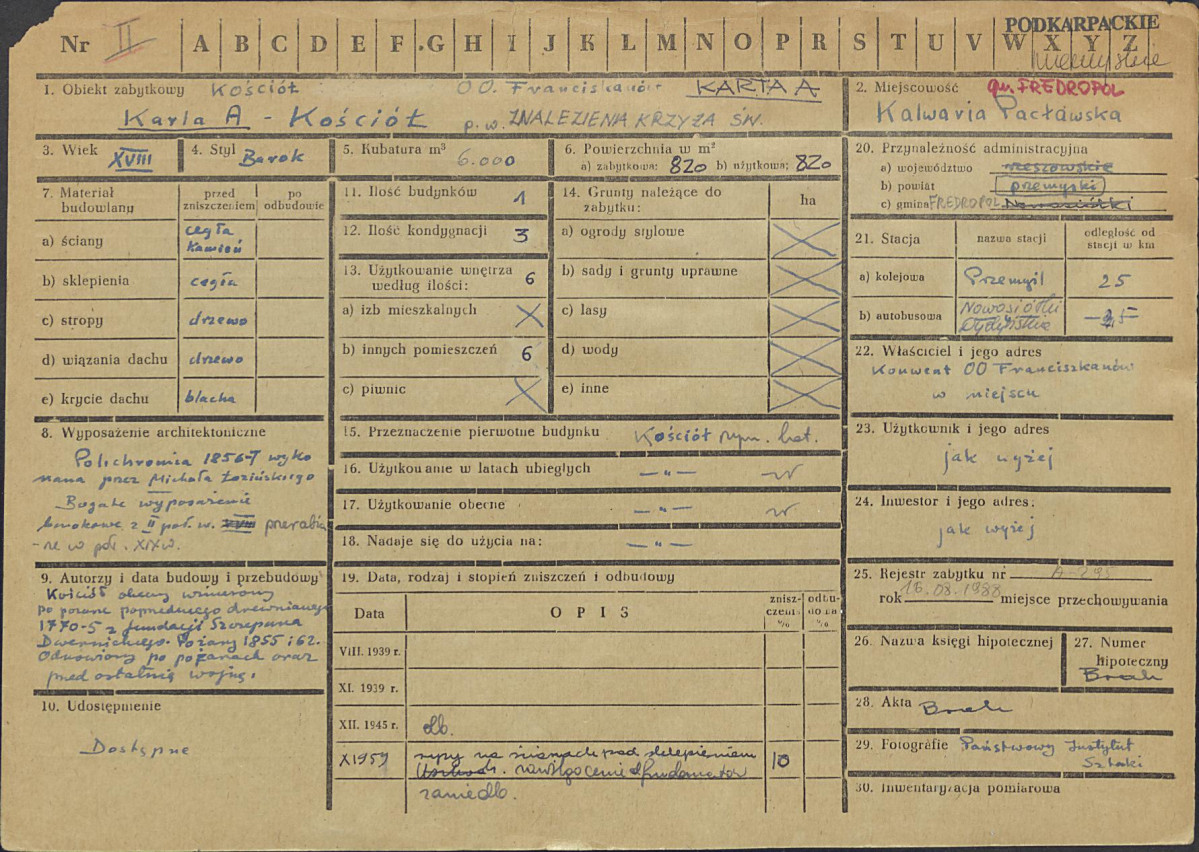 PODKARPACKIE
Nr II A B C D E F G H I J K L M N O P R S T U V W X Y Z
1. Obiekt zabytkowy Kościół OO. Franciszkanów KARTA A
Karta A - Kościół p.w. ZNALEZIENIA KRZYŻA ŚW.
2. Miejscowość gm. FREDROPOL
Kalwaria Pacławska
3. Wiek XVIII
4. Styl Barok
5. Kubatura m³ 6.000
6. Powierzchnia w m²
a) zabytkowa: 820 b) użytkowa: 820
7. Materiał budowlany
przed zniszczeniem
po odbudowie
a) ściany cegła kamień
b) sklepienia cegła
c) stropy drzewo
d) wiązania dachu drzewo
e) krycie dachu blacha
8. Wyposażenie architektoniczne
Polichromia 1856-7 wyko
nana przez Michała Łozińskiego
Bogate wyposażenie
barokowe z II poł. w. XVIII przerabia
-ne w poł. XIX w.
9. Autorzy i data budowy i przebudowy
Kościół obecny wzniesiony
po poprzedniego drewnianego
1770-5 z fundacji Szczepana
Dwernickiego. Pożary 1855 i 62.
Odnowiony po pożarach oraz
przed ostatnią wojną.
10. Udostępnienie
Dostępne
11. Ilość budynków 1
12. Ilość kondygnacji 3
13. Użytkowanie wnętrza według ilości: 6
a) izb mieszkalnych
b) innych pomieszczeń 6
c) piwnic
14. Grunty należące do zabytku: ha
a) ogrody stylowe
b) sady i grunty uprawne
c) lasy
d) wody
e) inne
15. Przeznaczenie pierwotne budynku Kościół rzym. kat.
16. Użytkowanie w latach ubiegłych —"—
17. Użytkowanie obecne —"—
18. Nadaje się do użycia na: —"—
19. Data, rodzaj i stopień zniszczeń i odbudowy
Data OPIS zniszczenia % odbudowa %
VIII. 1939 r.
XI. 1939 r.
XII. 1945 r. db.
X 1959 rysy na ścianach pod sklepieniem 10
zawilgocenie fundamentów
zaniedb.
20. Przynależność administracyjna
a) województwo rzeszowskie
b) powiat przemyski
c) gmina FREDROPOL Nowosiółki
21. Stacja nazwa stacji odległość od stacji w km
a) kolejowa Przemyśl 25
b) autobusowa Nowosiółki Dydyńskie
22. Właściciel i jego adres
Konwent OO Franciszkanów
w miejscu
23. Użytkownik i jego adres
jak wyżej
24. Inwestor i jego adres:
jak wyżej
25. Rejestr zabytku nr A-295
rok 16.08.1988 miejsce przechowywania
26. Nazwa księgi hipotecznej
27. Numer hipoteczny
Brak
28. Akta Brak
29. Fotografie Państwowy Instytut
Sztuki
30. Inwentaryzacja pomiarowa